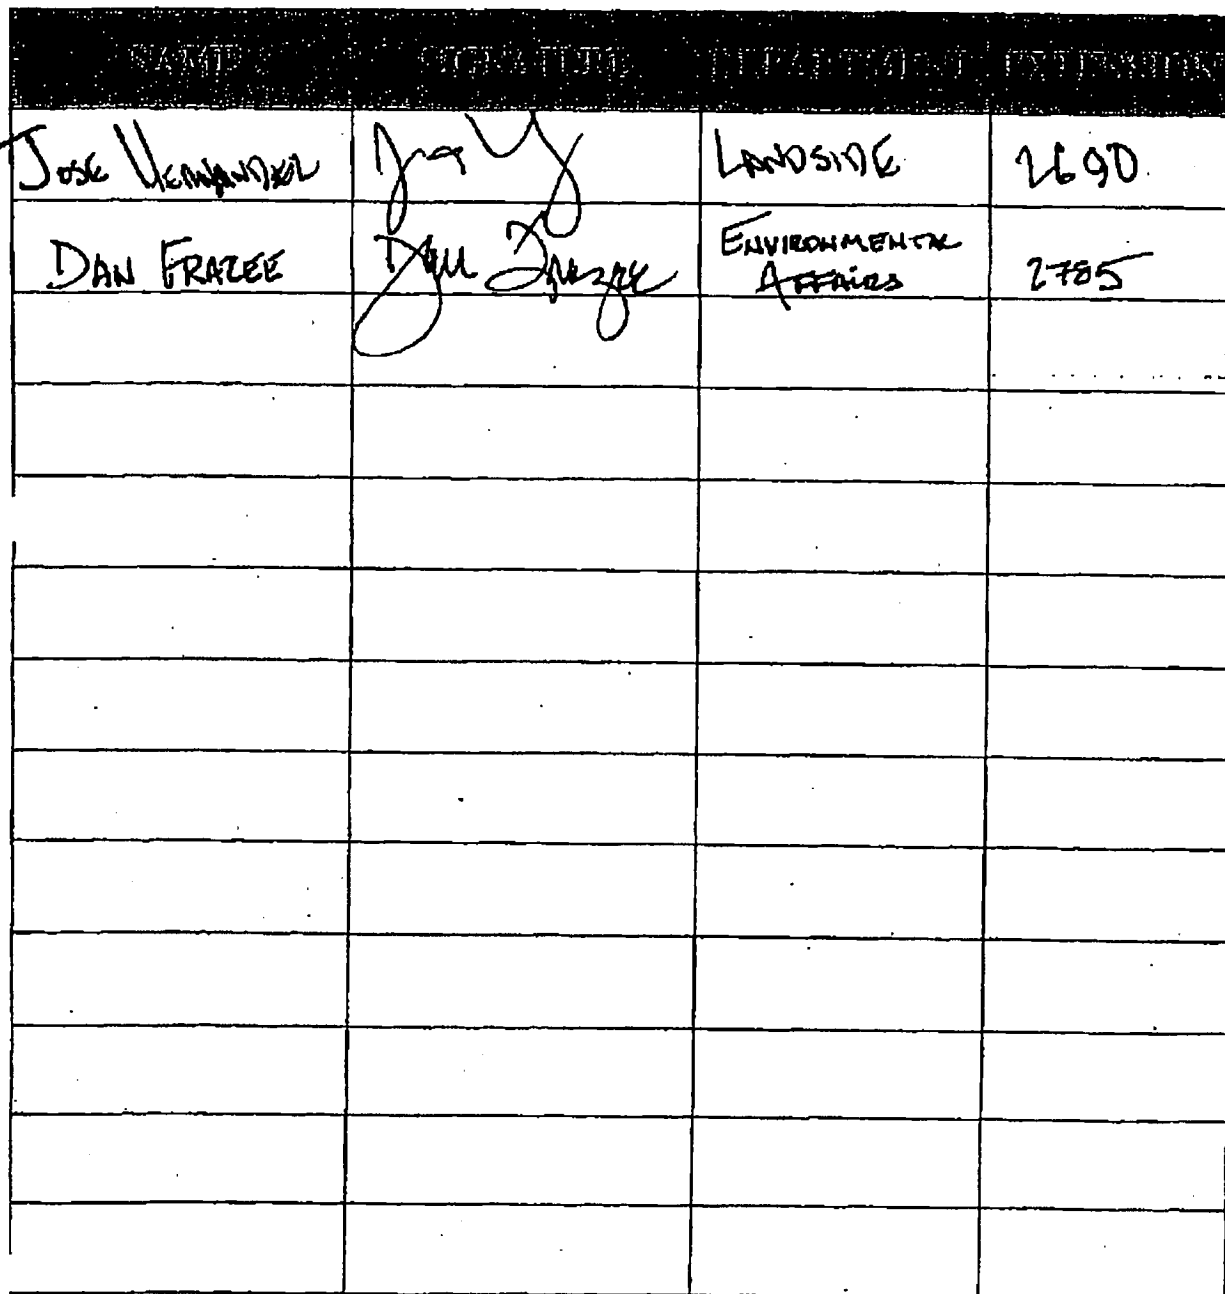 NAME SIGNATURE DEPARTMENT EXTENSION
Jose Hernandez Landside 2690
Dan Frazee Dan Frazee Environmental Affairs 2785